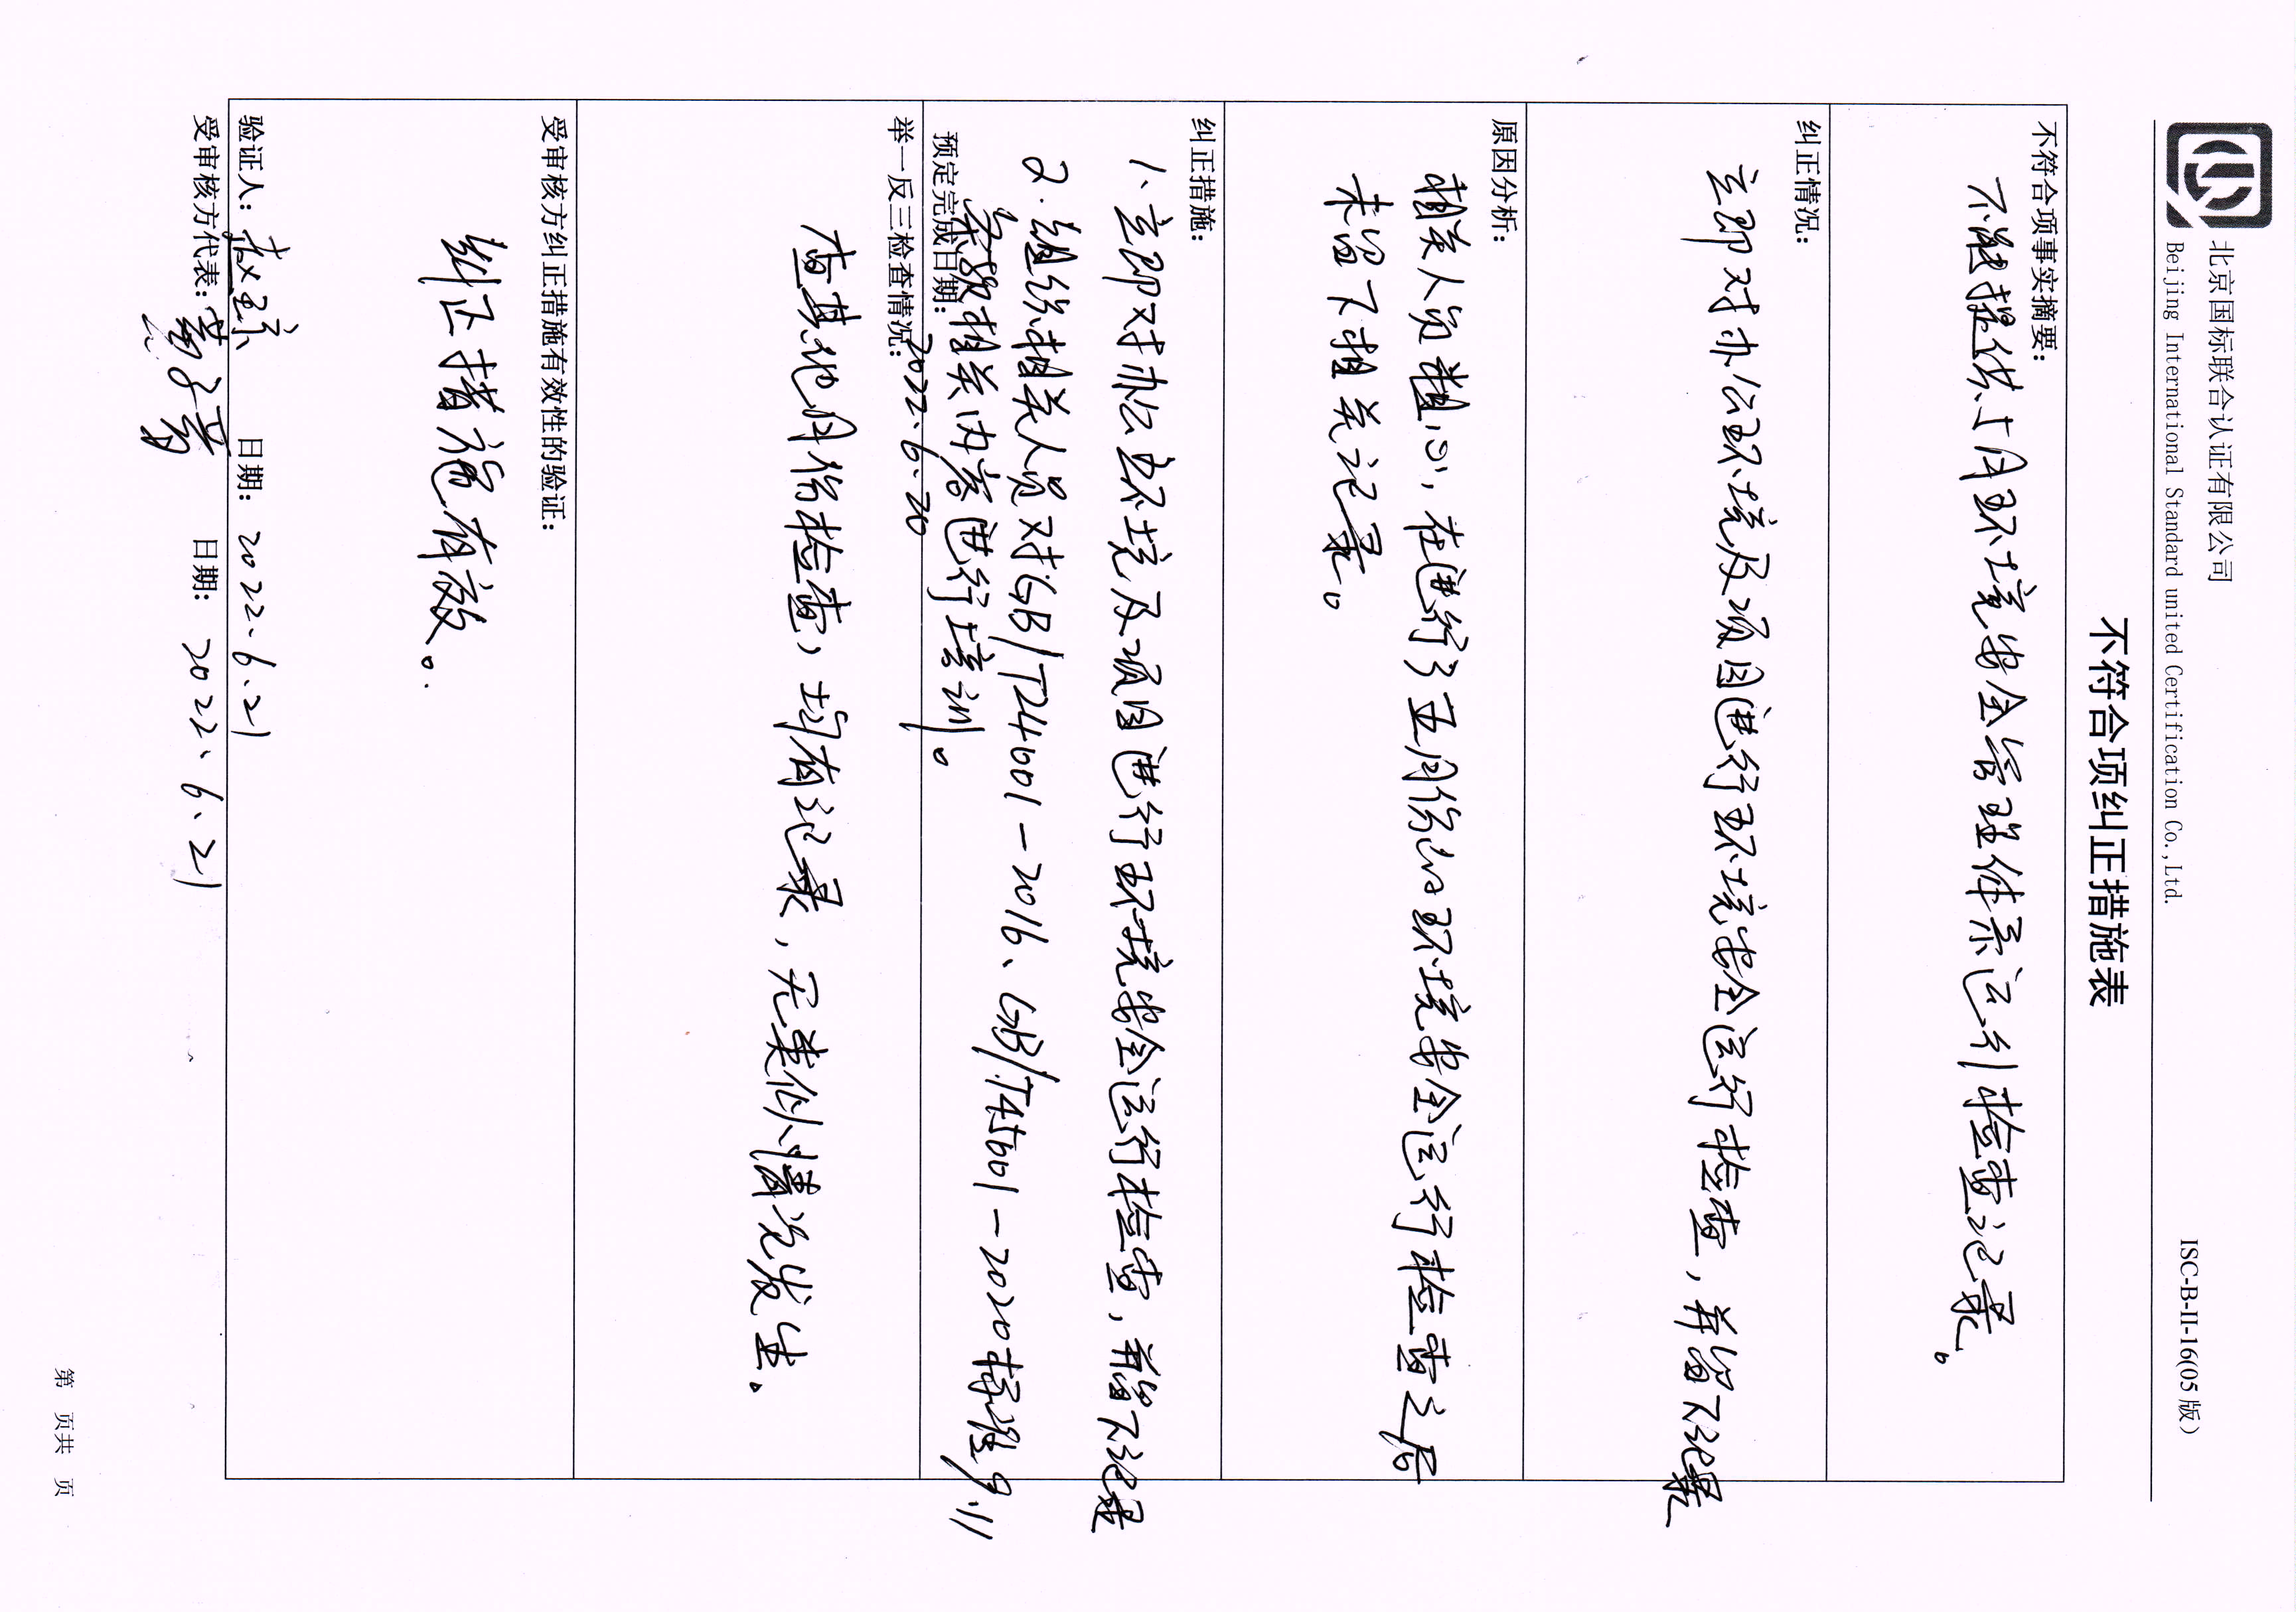 北京国标联合认证有限公司
Beijing International Standard united Certification Co.,Ltd.
ISC-B-II-16(05版)
不符合项纠正措施表
不符合项事实摘要:
不能提供上月环境安全管理体系运行检查记录。
纠正情况:
立即对办公环境及项目进行环境安全运行检查,并留下记录
原因分析:
相关人员粗心,在进行了五月份的环境安全运行检查之后
未留下相关记录。
纠正措施:
1、立即对办公环境及项目进行环境安全运行检查,并留下记录
2.组织相关人员对GB/T24001-2016、GB/T45001-2020标准9.1.1
条款相关内容进行培训。
预定完成日期: 2022.6.20
举一反三检查情况:
查其他月份检查,均有记录,无类似情况发生.
受审核方纠正措施有效性的验证:
纠正措施有效。
验证人: 日期: 2022.6.21
受审核方代表: 日期: 2022.6.21
第 页共 页